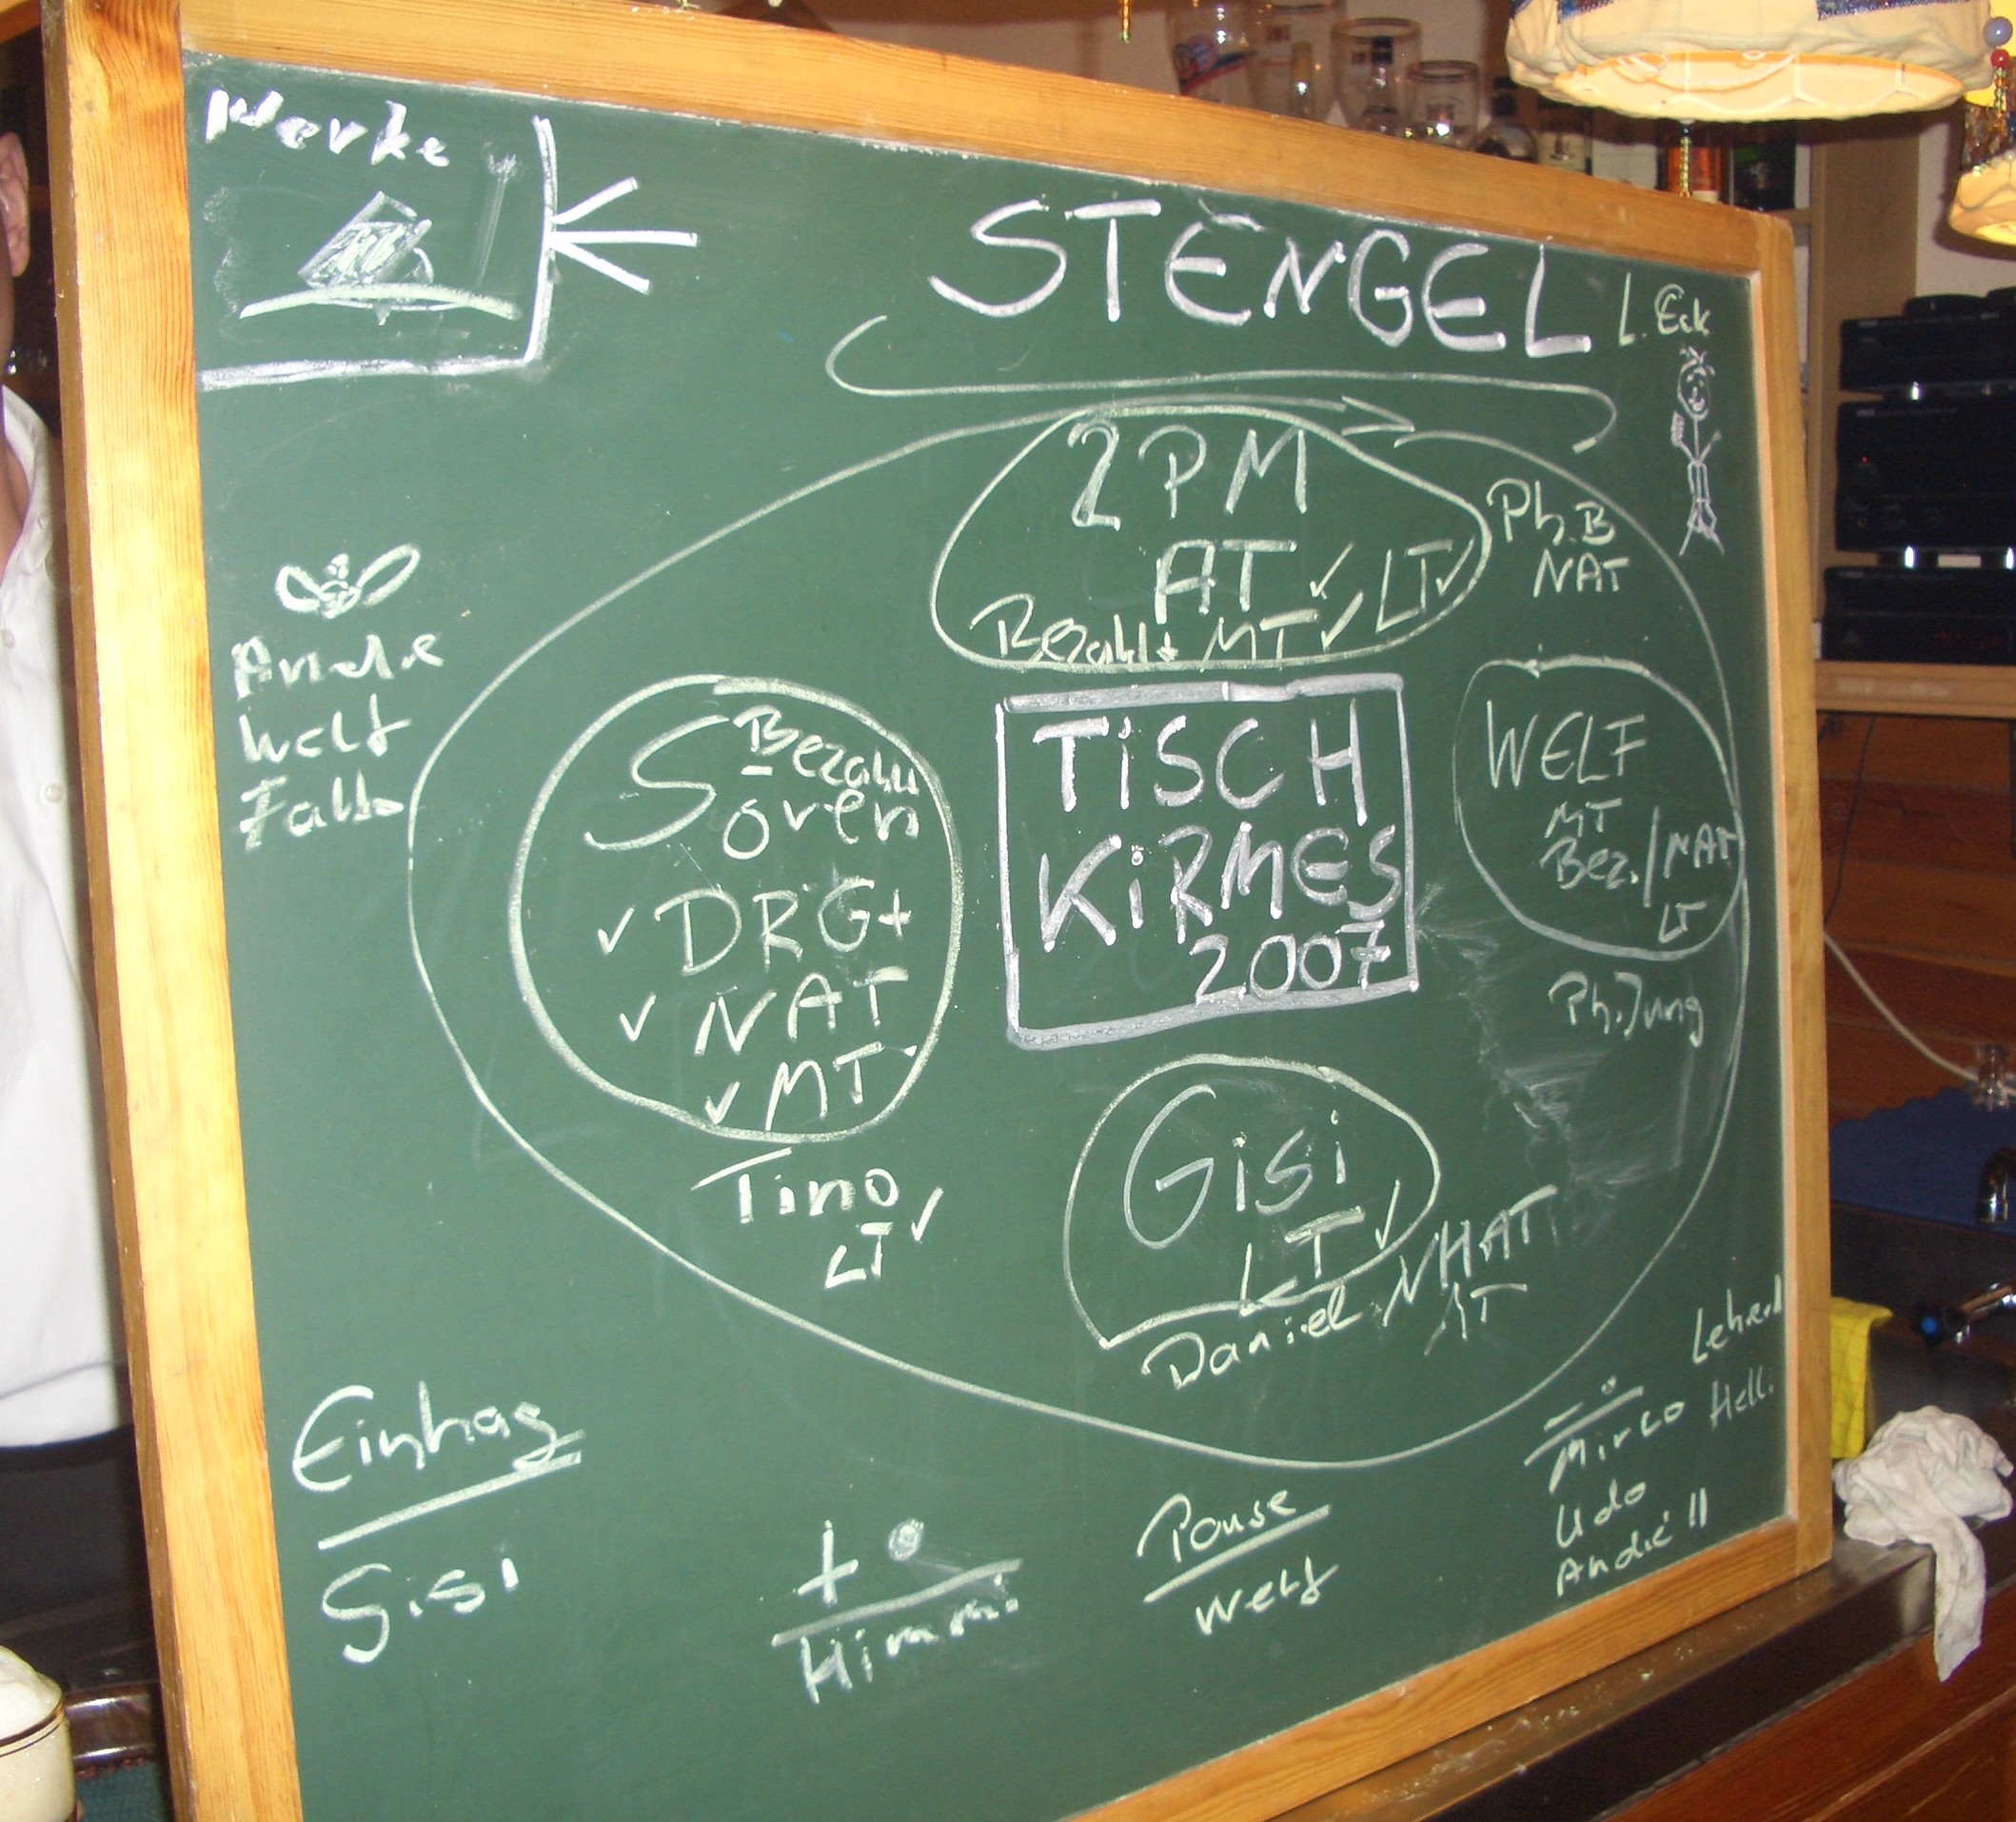 Werke
STENGEL
L. Eck
2PM
AT ✓ LT ✓
Bezahlt MT ✓
Ph.B
NAT
Andre
Welf
Bezahlt
Sören
✓ DRG+
✓ NAT
✓ MT
TiSCH
KiRMES
2007
WELF
MT
Bez./NAT
LT
Ph.Jung
Tino
LT ✓
Gisi
LT ✓
Daniel NHAT
AT
Einhag
Gisi
+
Himmi
Pause
Welf
Mirco
Udo
André II
Hell.